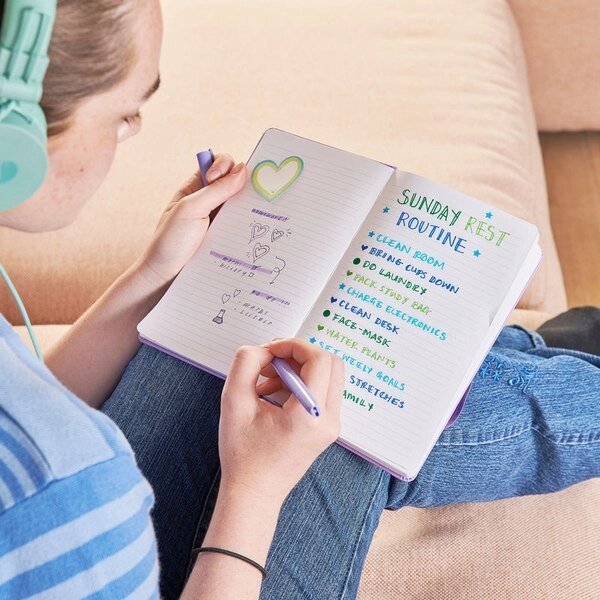 SUNDAY REST
ROUTINE
CLEAN ROOM
BRING CUPS DOWN
DO LAUNDRY
PACK STUDY BAG
CHARGE ELECTRONICS
CLEAN DESK
FACE-MASK
WATER PLANTS
SET WEEKLY GOALS
STRETCHES